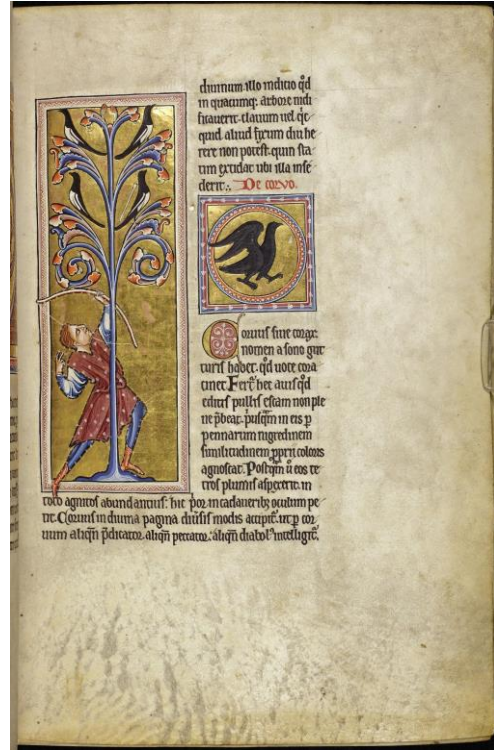 diuinum illo indicio qd̄
in quacumq; arbore nidi
ficauerit. clauum uel qͥc
quid aliud fixum diu he
rere non potest. quin sta
tim excidat ubi illa inse
derit. De coruo.
Coruus siue corax.
nomen a sono gut
turis habet. qd̄ uoce cora
cinet. Fert̄ hec auis qd̄
editis pullis escam non ple
ne p̄beat. pͥusq̄m in eis p̄
pennarum nigredinem
similitudinem pp̄rii coloris
agnoscat. Postq̄m ū eos te
tros plumis aspexerit. in
toto agnitos abundantius. hic pͥor in cadaueribꝫ oculum pe
tit. Coruus in diuina pagina diūsis modis accipit̄. ut p̄ cor
uum aliqn̄ p̄dicator. aliqn̄ peccator. aliqn̄ diabolꝰ intelligit̄.